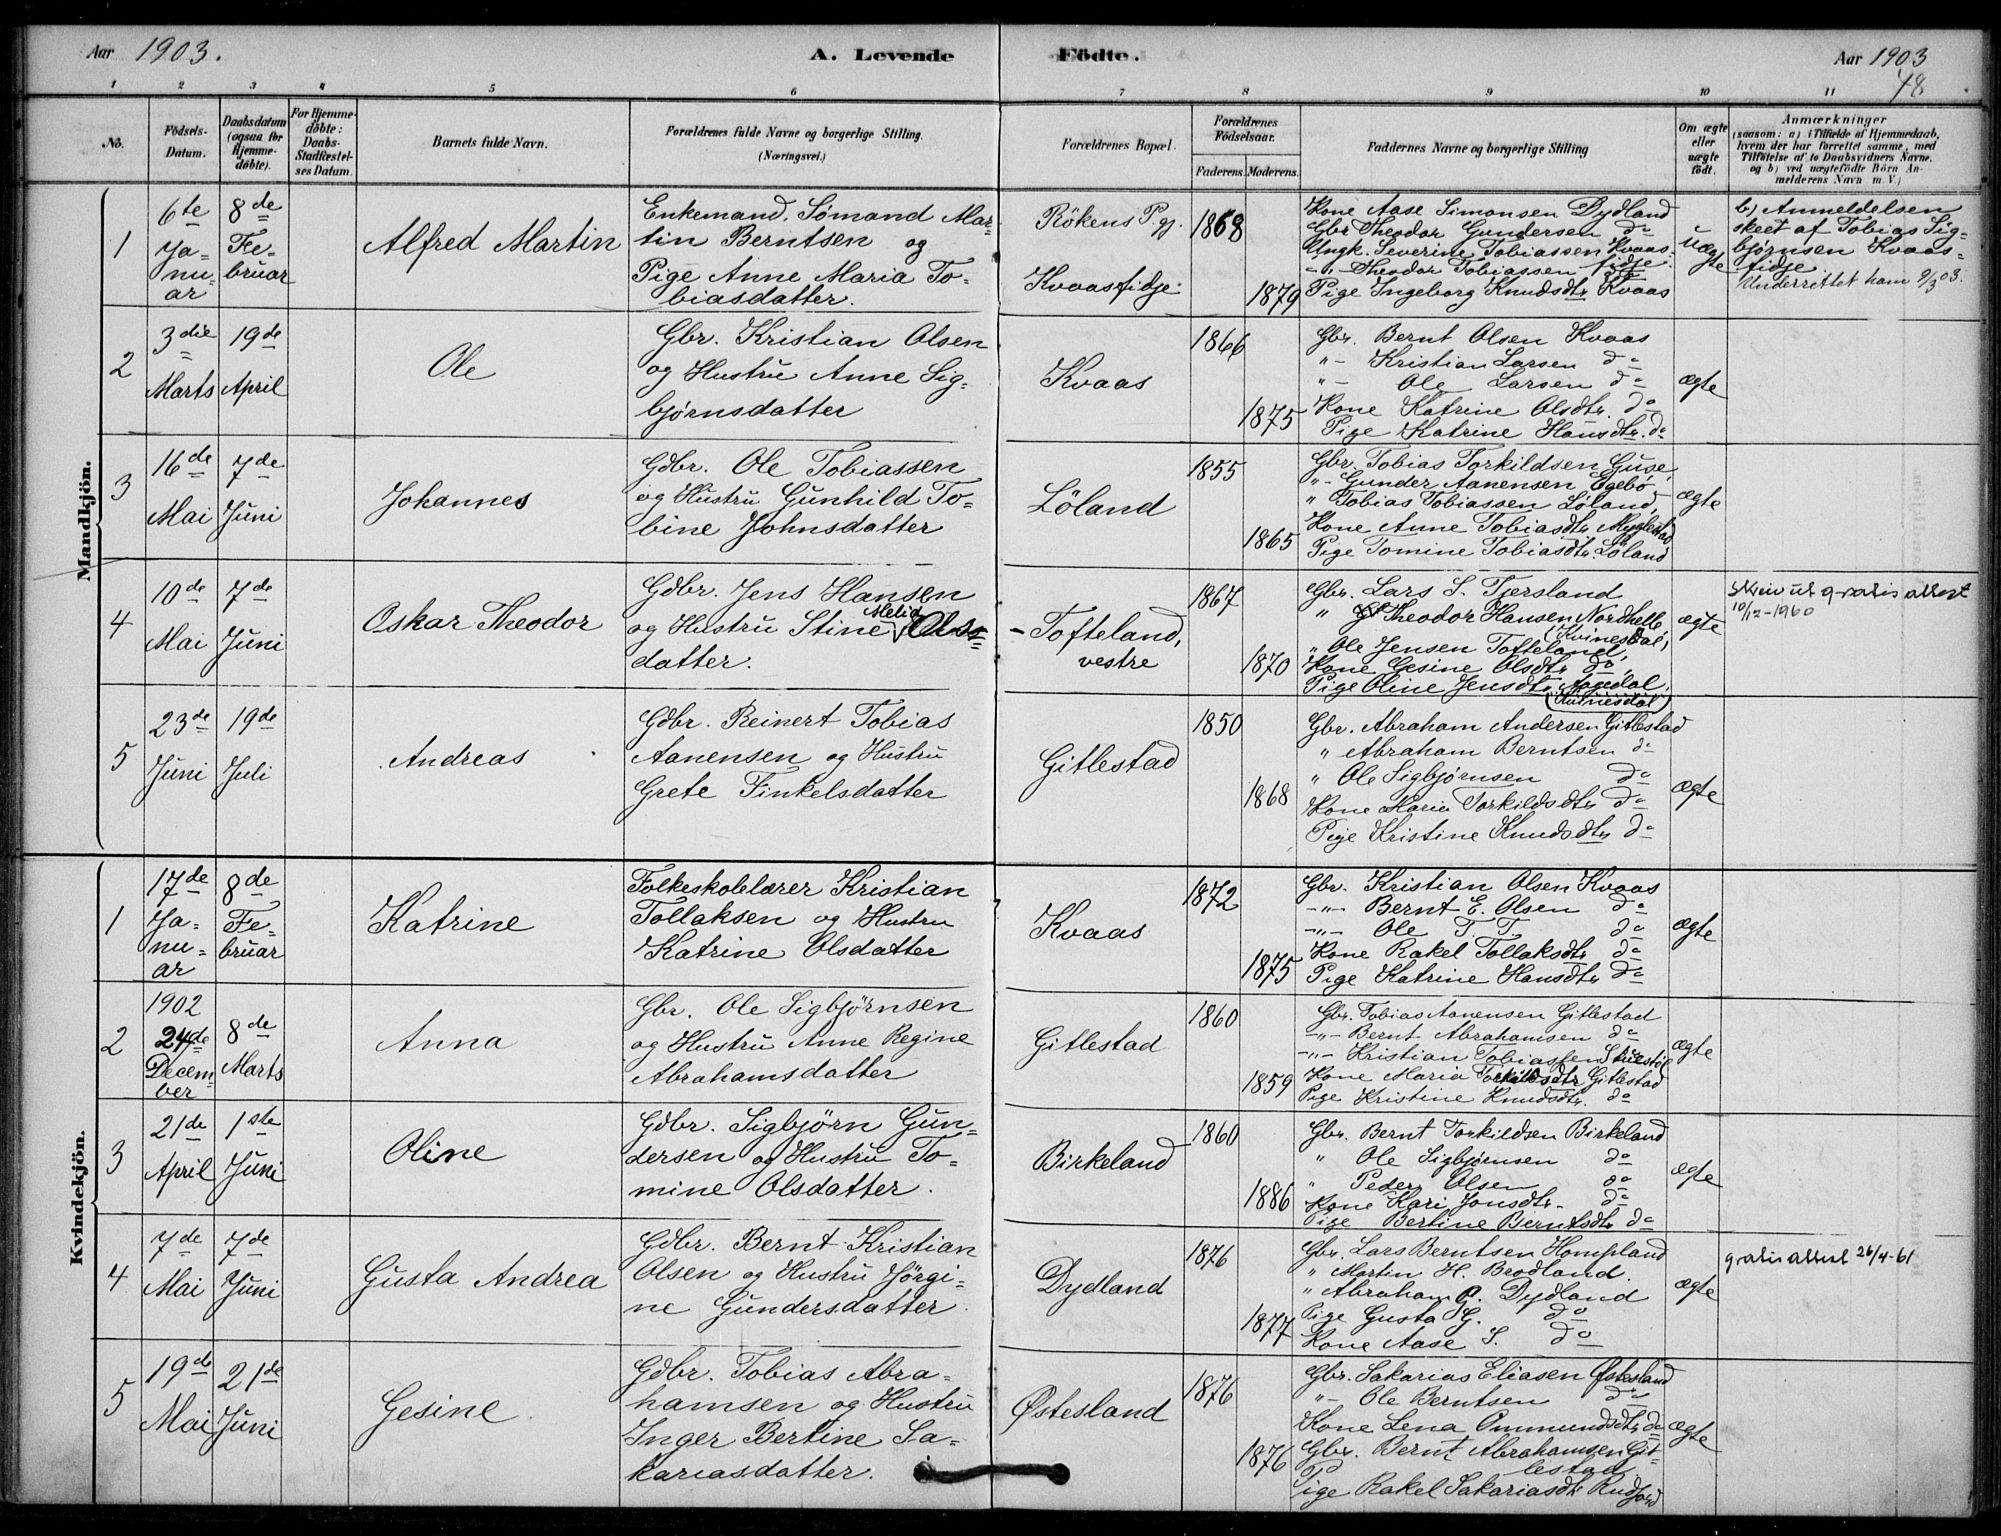 Aar 1903.
A. Levende Födte.
Aar 1903
48
1 2 3 4 5 6 7 8 9 10 11
No.
Födsels-Datum.
Daabsdatum (ogsaa for Hjemme-döbte).
For Hjemme-döbte: Daabs-Stadfæstel-ses Datum.
Barnets fulde Navn.
Forældrenes fulde Navne og borgerlige Stilling. (Næringsvei.)
Forældrenes Bopæl.
Forældrenes Födselsaar.
Faderens. Moderens.
Faddernes Navne og borgerlige Stilling
Om ægte eller uægte födt.
Anmærkninger
(saasom: a) i Tilfælde af Hjemmedaab,
hvem der har forrettet samme, med
Tilföielse af to Daabsvidners Navne.
og b) ved uægtefödte Börn An-
melderens Navn m. V.)
Mandkjön.
1
6te Ja-nu-ar
8de Fe-bruar
Alfred Martin
Enkemand, Sømand Mar-
tin Berntsen og
Pige Anne Maria To-
biasdatter.
Rökens Pgj.
Kvaasfidje.
1868
1879
Kone Aase Simonsen Dydland
Gbr Theodor Gundersen do
Ungk. Severine Tobiassen Kvaas-
fidje.
-"- Theodor Tobiassen do
Pige Ingeborg Knudsdtr Kvaas
Uægte
b) Anmeldelsen
skeet af Tobias Sig-
bjørnsen Kvaas-
fidje
Underrettet ham 9/3 03.
2
3die Marts
19de April
Ole
Gbr. Kristian Olsen
og Hustru Anne Sig-
bjørnsdatter
Kvaas
1866
1875
Gbr. Bernt Olsen Kvaas
"- Kristian Larsen do
"- Ole Larsen do
Kone Katrine Olsdtr. do
Pige Katrine Hansdtr. do
ægte
3
16de Mai
7de Juni
Johannes
Gdbr. Ole Tobiassen
og Hustru Gunhild To-
bine Johnsdatter
Löland
1855
1865
Gbr. Tobias Torkildsen Guse,
"- Gunder Aanensen Egebø
" Tobias Tobiassen Løland,
Kone Anne Tobiasdtr Myglestad
Pige Tomine Tobiasdtr. Løland
ægte
4
10de Mai
7de Juni
Oskar Theodor
Gdbr. Jens Hansen
Melid
og Hustru Stine Ols-
datter.
- Tofteland,
vestre
1867
1870
Gbr. Lars S. Tjersland
" Theodor Hansen Nordhelle,
(Kvinesdal,
" Ole Jensen Tofteland,
Kone Gesine Olsdtr do,
Pige Oline Jensdtr
(Kvinesdal)
ægte
Skrevut gratis attest
10/12-1960
5
23de Juni
19de Juli
Andreas
Gdbr. Reinert Tobias
Aanensen og Hustru
Grete Finkelsdatter
Gitlestad
1850
1868
Gbr. Abraham Andersen Gitlestad
" Abraham Berntsen do
" Ole Sigbjørnsen do
Kone Maria Torkildsdtr do
Pige Kristine Knudsdtr do
ægte
Kvindekjön.
1
17de Ja-nu-ar
8de Fe-bruar
Katrine
Folkeskolelærer Kristian
Tollaksen og Hustru
Katrine Olsdatter
Kvaas
1872
1875
Gbr. Kristian Olsen Kvaas
-"- Bernt E. Olsen do
-"- Ole T. T. do
Kone Rakel Tollaksdtr do
Pige Katrine Hansdtr do
ægte
2
1902
24de Decem-ber
8de Marts
Anna
Gbr. Ole Sigbjørnsen
og Hustru Anne Regine
Abrahamsdatter
Gitlestad
1860
1859
Gbr. Tobias Aanensen Gitlestad
-"- Bernt Abrahamsen do
-"- Kristian Tobiassen
Kone Maria Torkildsdtr Gitlestad
Pige Kristine Knudsdtr. do
ægte
3
21de April
1ste Juni
Oline
Gdbr. Sigbjørn Gun-
dersen og Hustru To-
mine Olsdatter.
Birkeland
1860
1886
Gbr. Bernt Torkildsen Birkeland
" Ole Sigbjørnsen do
" Peder Olsen do
Kone Kari Jonsdtr. do
Pige Bertine Berntsdtr do
ægte
4
7de Mai
7de Juni
Gusta Andrea
Gdbr. Bernt Kristian
Olsen og Hustru Jörgi-
ne Gundersdatter.
Dydland
1876
1877
Gbr. Lars Berntsen Hompland
" Martin H. Brodland.
" Abraham G. Dydland
Pige Gusta G. do
Kone Aase S. do
ægte
gratis attest 26/4-61
5
19de Mai
21de Juni
Gesine
Gdbr. Tobias Abra-
hamsen og Hustru
Inger Bertine Sa-
kariasdatter.
Østesland
1876
1876
Gbr. Sakarias Eliasen Østesland
"- Ole Berntsen do
Kone Lena Ommundsdtr do
Gbr. Bernt Abrahamsen Git-
lestad
Pige Rakel Sakariasdtr Rudjord
ægte